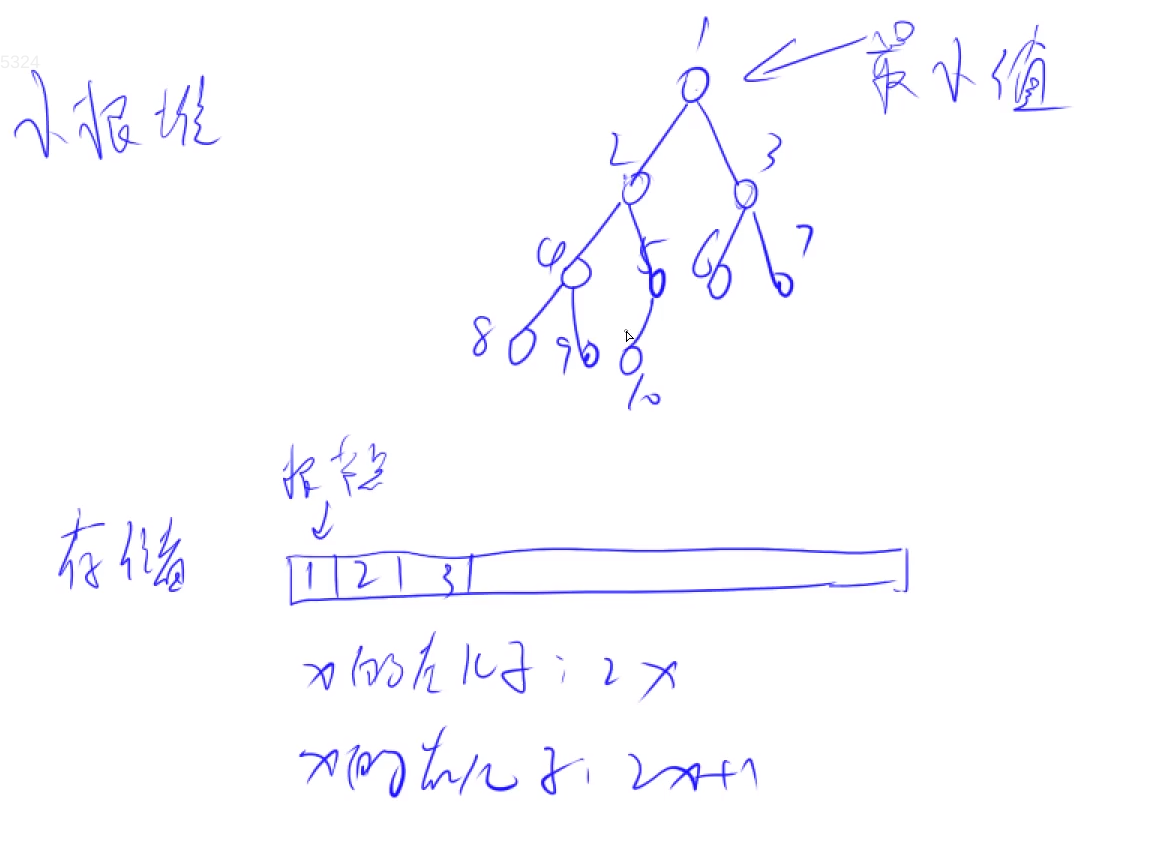 5324
1
最小值
小根堆
2 3
4 5 6 7
8 9
10
根节点
存储
1 2 3
x的左儿子: 2x
x的右儿子: 2x+1